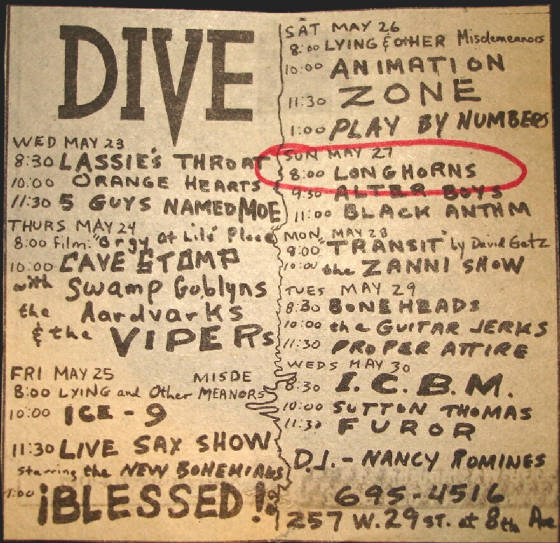 DIVE
WED MAY 23
8:30 LASSIE'S THROAT
10:00 ORANGE HEARTS
11:30 5 GUYS NAMED MOE
THURS MAY 24
8:00 Film: "Orgy at Lils' Place
10:00 CAVE STOMP
with Swamp Goblyns
the Aardvarks
& the VIPERS
FRI MAY 25
8:00 LYING and Other MISDEMEANORS
10:00 ICE-9
11:30 LIVE SAX SHOW
starring the NEW BOHEMIANS
1:00 ¡BLESSED!
SAT MAY 26
8:00 LYING & OTHER Misdemeanors
10:00 ANIMATION
11:30 ZONE
1:00 PLAY BY NUMBERS
SUN MAY 27
8:00 LONGHORNS
9:30 ALTER BOYS
11:00 BLACK ANTHM
MON MAY 28
9:00 "TRANSIT" by David Getz
10:00 the ZANNI SHOW
TUES MAY 29
8:30 BONEHEADS
10:00 the GUITAR JERKS
11:30 PROPER ATTIRE
WEDS MAY 30
8:30 I.C.B.M.
10:00 SUTTON THOMAS
11:30 FUROR
D.J. - NANCY ROMINGS
695-4516
257 W. 29 ST. at 8th Ave